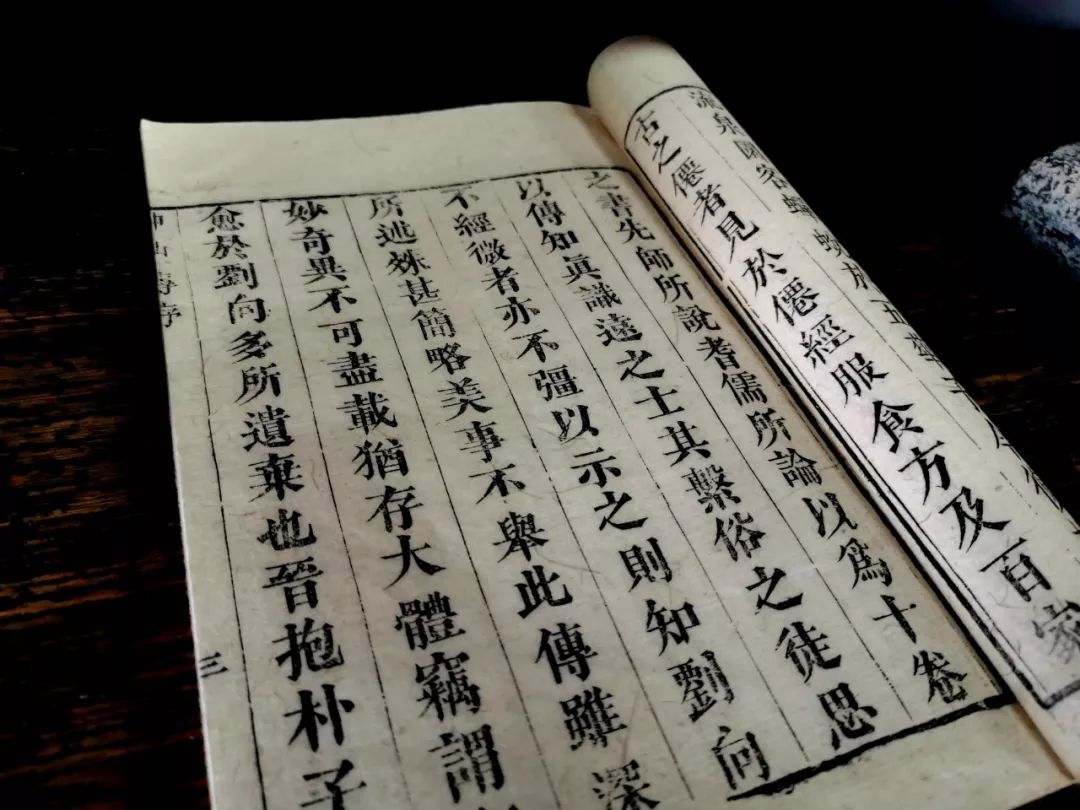 流泉園客蟬蛻於五華
古之僊者見於僊經服食方及百家
之書先師所說耆儒所論以爲十卷
以傳知眞識遠之士其繫俗之徒思
不經微者亦不彊以示之則知劉向
所述殊甚簡略美事不舉此傳雖深
妙奇異不可盡載猶存大體竊謂
愈於劉向多所遺棄也晉抱朴子
序 三